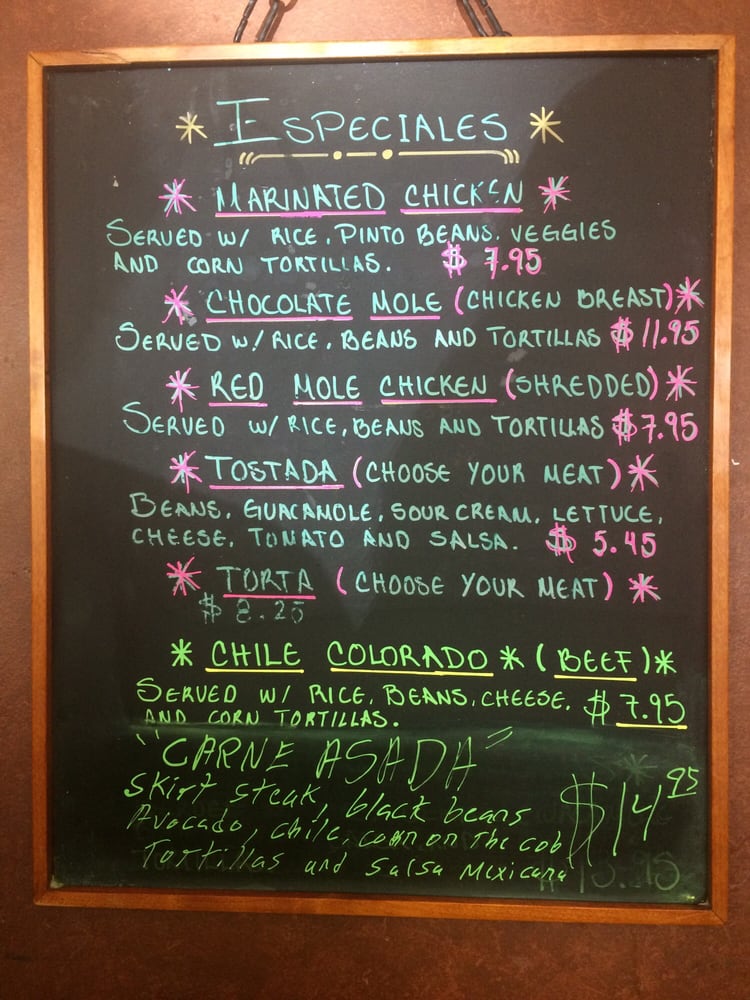 * ESPECIALES *
* MARINATED CHICKEN *
SERVED W/ RICE, PINTO BEANS, VEGGIES
AND CORN TORTILLAS. $ 7.95
* CHOCOLATE MOLE (CHICKEN BREAST) *
SERVED W/ RICE, BEANS AND TORTILLAS $ 11.95
* RED MOLE CHICKEN (SHREDDED) *
SERVED W/ RICE, BEANS AND TORTILLAS $ 7.95
* TOSTADA (CHOOSE YOUR MEAT) *
BEANS, GUACAMOLE, SOUR CREAM, LETTUCE,
CHEESE, TOMATO AND SALSA. $ 5.45
* TORTA (CHOOSE YOUR MEAT) *
$ 8.25
* CHILE COLORADO * (BEEF) *
SERVED W/ RICE, BEANS, CHEESE, $ 7.95
AND CORN TORTILLAS.
"CARNE ASADA"
Skirt steak, black beans $14 95
Avocado, chile, corn on The cob
Tortillas and Salsa Mexicana